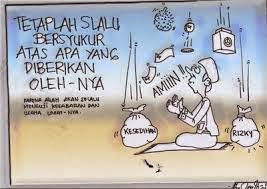 TETAPLAH SLALU
BERSYUKUR
ATAS APA YANG
DIBERIKAN
OLEH-NYA
KARENA ALLAH AKAN SELALU
MENGUJI KESABARAN DAN
USAHA UMAT-NYA.
AMIIN!
KESEDIHAN
RIZKY